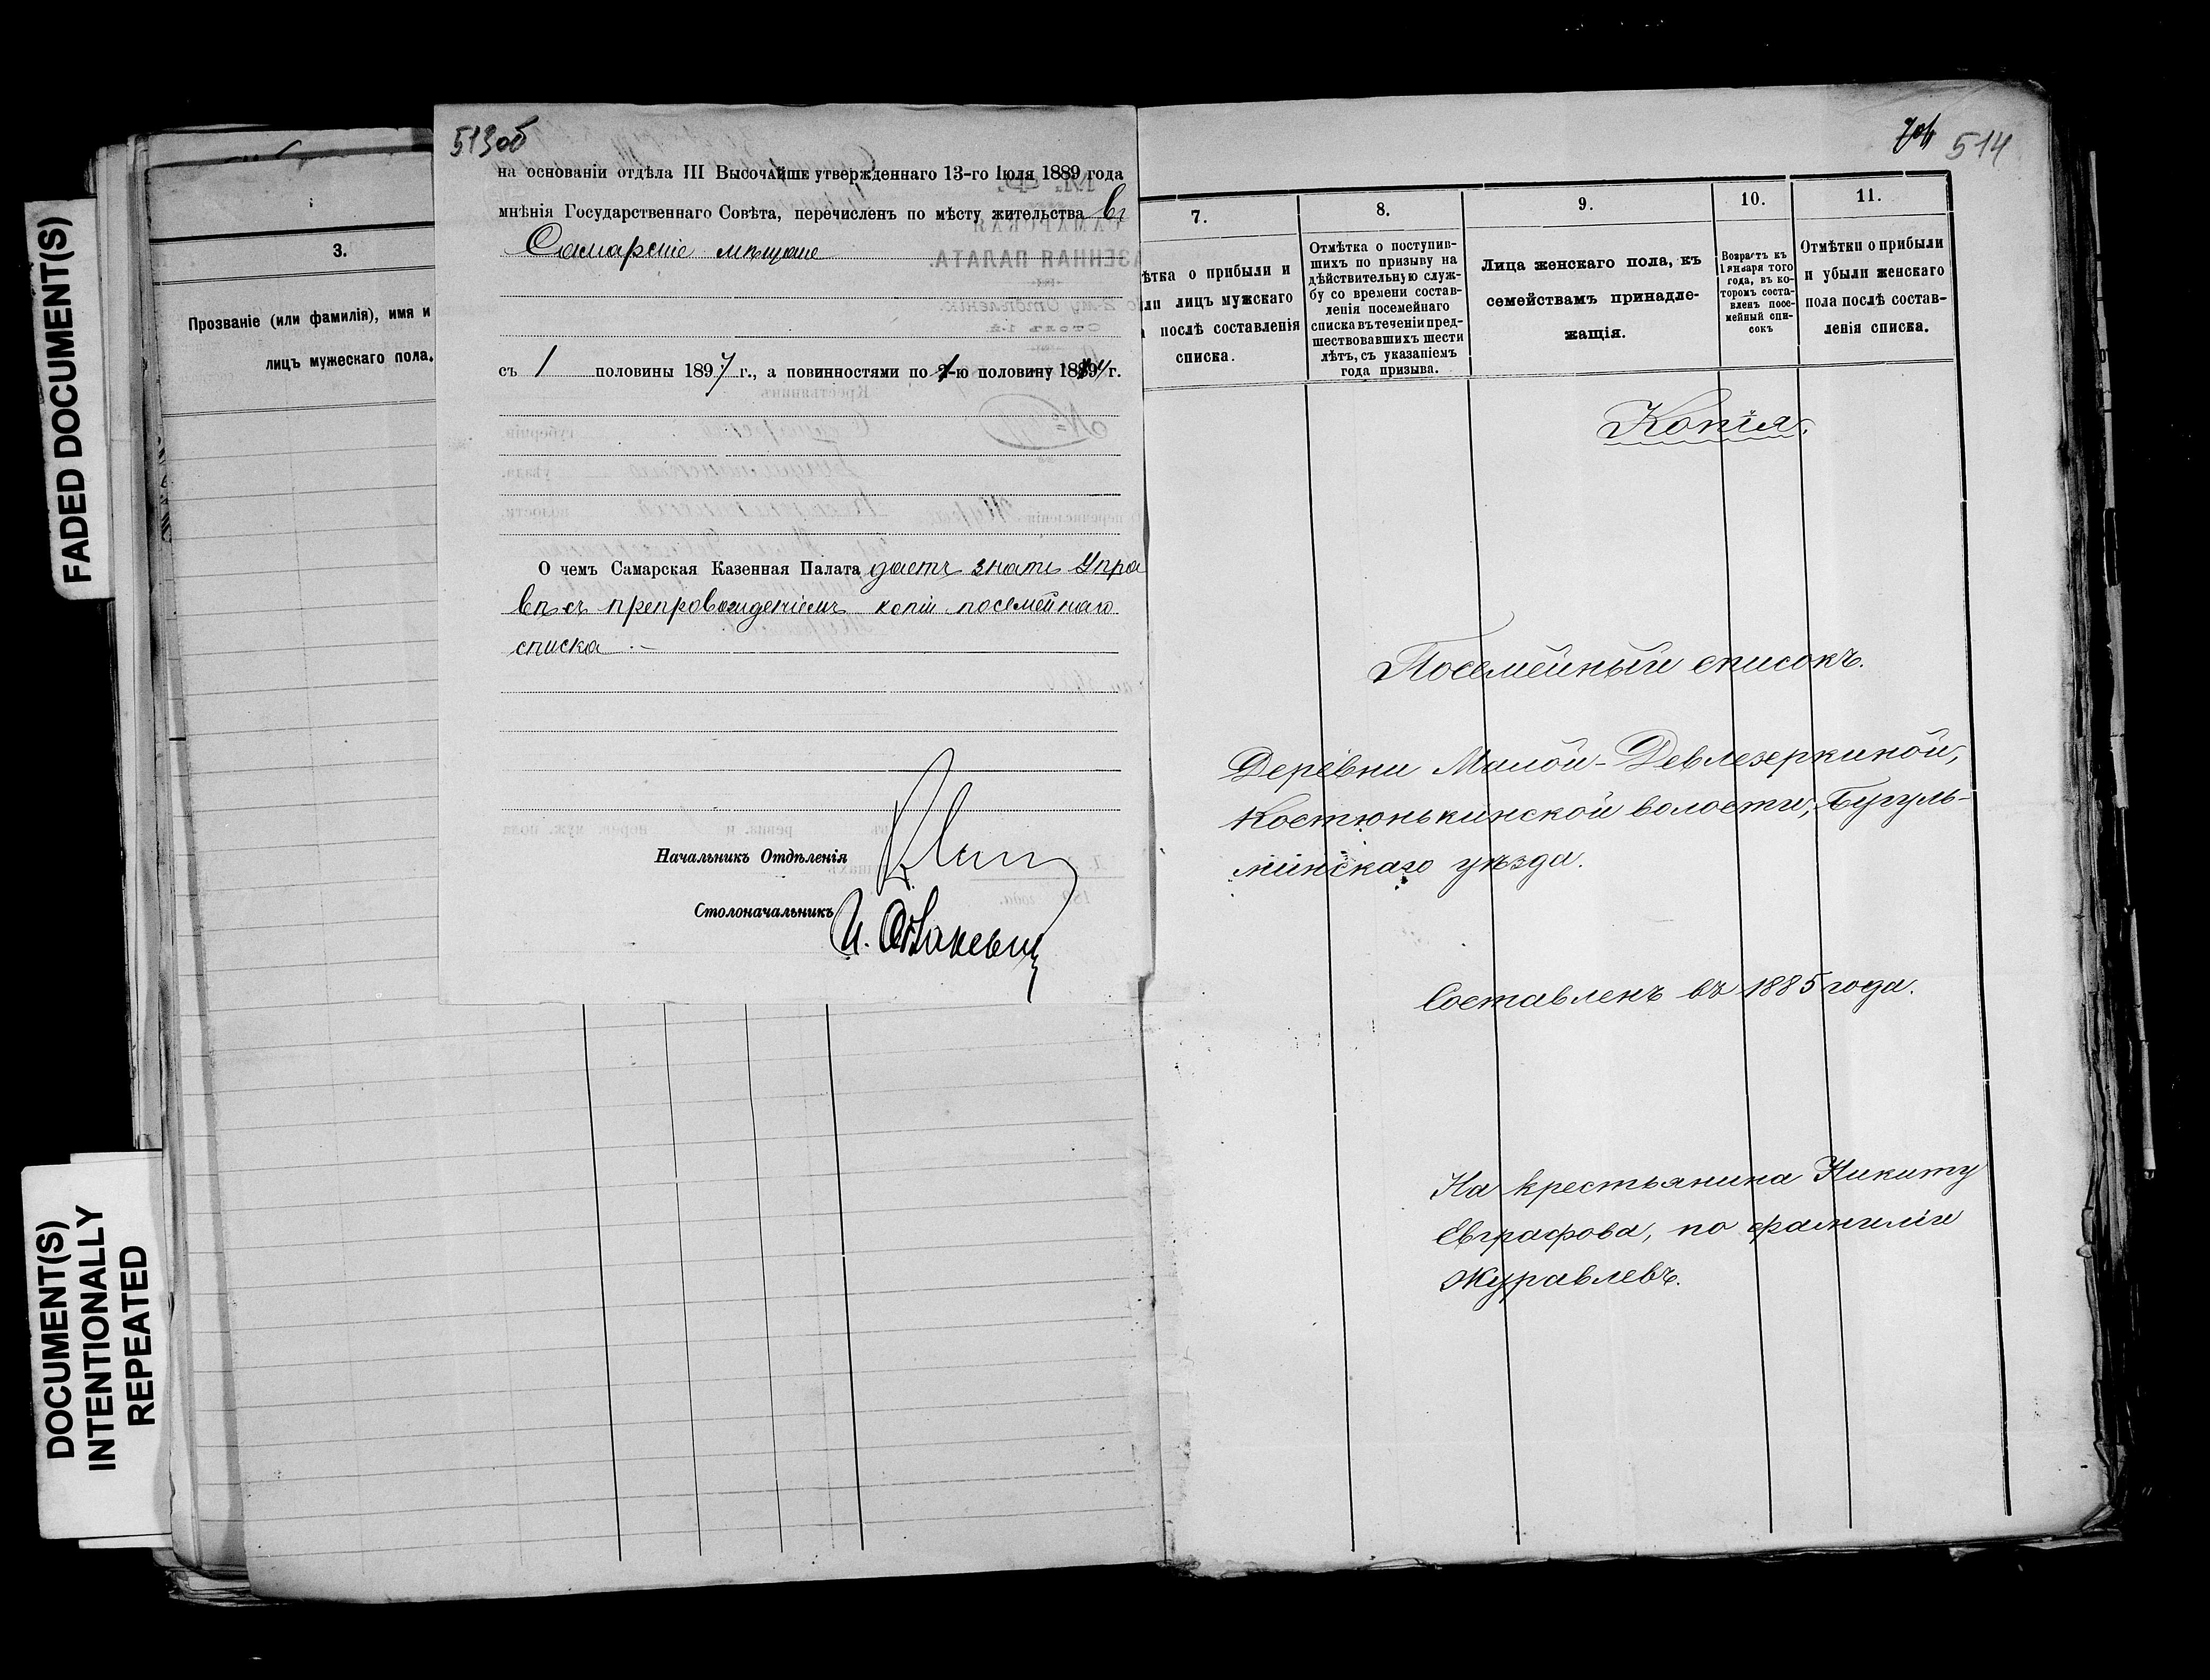 FADED DOCUMENT(S)
DOCUMENT(S)
INTENTIONALLY
REPEATED
3.
Прозваніе (или фамилія), имя и
лицъ мужескаго пола.
513об
на основаніи отдѣла III Высочайше утвержденнаго 13-го Іюля 1889 года
мнѣнія Государственнаго Совѣта, перечисленъ по мѣсту жительства въ
Самарскіе мѣщане
съ 1 половины 1897 г., а повинностями по ½-ю половину г.
О чемъ Самарская Казенная Палата даетъ знать Упра
вѣ съ препровожденіемъ копіи посемейнаго
списка.
Начальникъ Отдѣленія
Столоначальникъ
514
7.
ѣтка о прибыли и
ли лицъ мужскаго
послѣ составленія
списка.
8.
Отмѣтка о поступив-
шихъ по призыву на
дѣйствительную служ-
бу со времени состав-
ленія посемейнаго
списка въ теченіи пред-
шествовавшихъ шести
лѣтъ, съ указаніемъ
года призыва.
9.
Лица женскаго пола, къ
семействамъ принадле-
жащія.
10.
Возрастъ къ
1 января того
года, въ ко-
торомъ соста-
вленъ посе-
мейный спи-
сокъ
11.
Отмѣтки о прибыли
и убыли женскаго
пола послѣ состав-
ленія списка.
Копія.
Посемейный списокъ.
Деревни Малой-Девлезеркиной,
Костюнькинской волости, Бугуль-
минскаго уѣзда.
Составленъ въ 1885 года.
На крестьянина Никиту
Евграфова, по фамиліи
Журавлевъ.